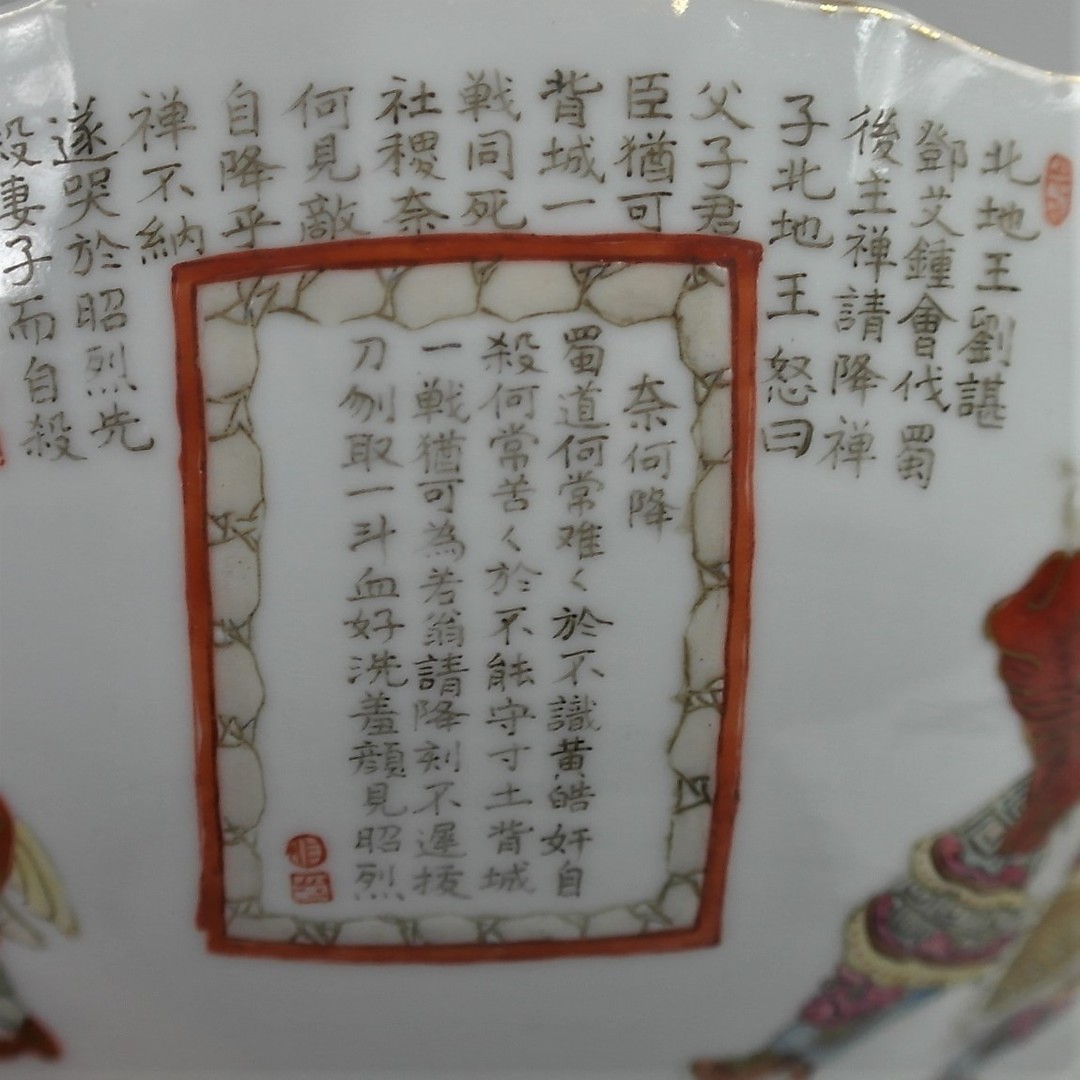 北地王劉諶
鄧艾鍾會伐蜀
後主禅請降禅
子北地王怒曰
父子君
臣猶可
背城一
戦同死
社稷奈
何見敵
自降乎
禅不納
遂哭於昭烈先
殺妻子而自殺
奈何降
蜀道何常难く於不識黄皓奸自
殺何常苦く於不能守寸土背城
一戦猶可為若翁請降刻不遲拔
刀刎取一斗血好洗羞顔見昭烈